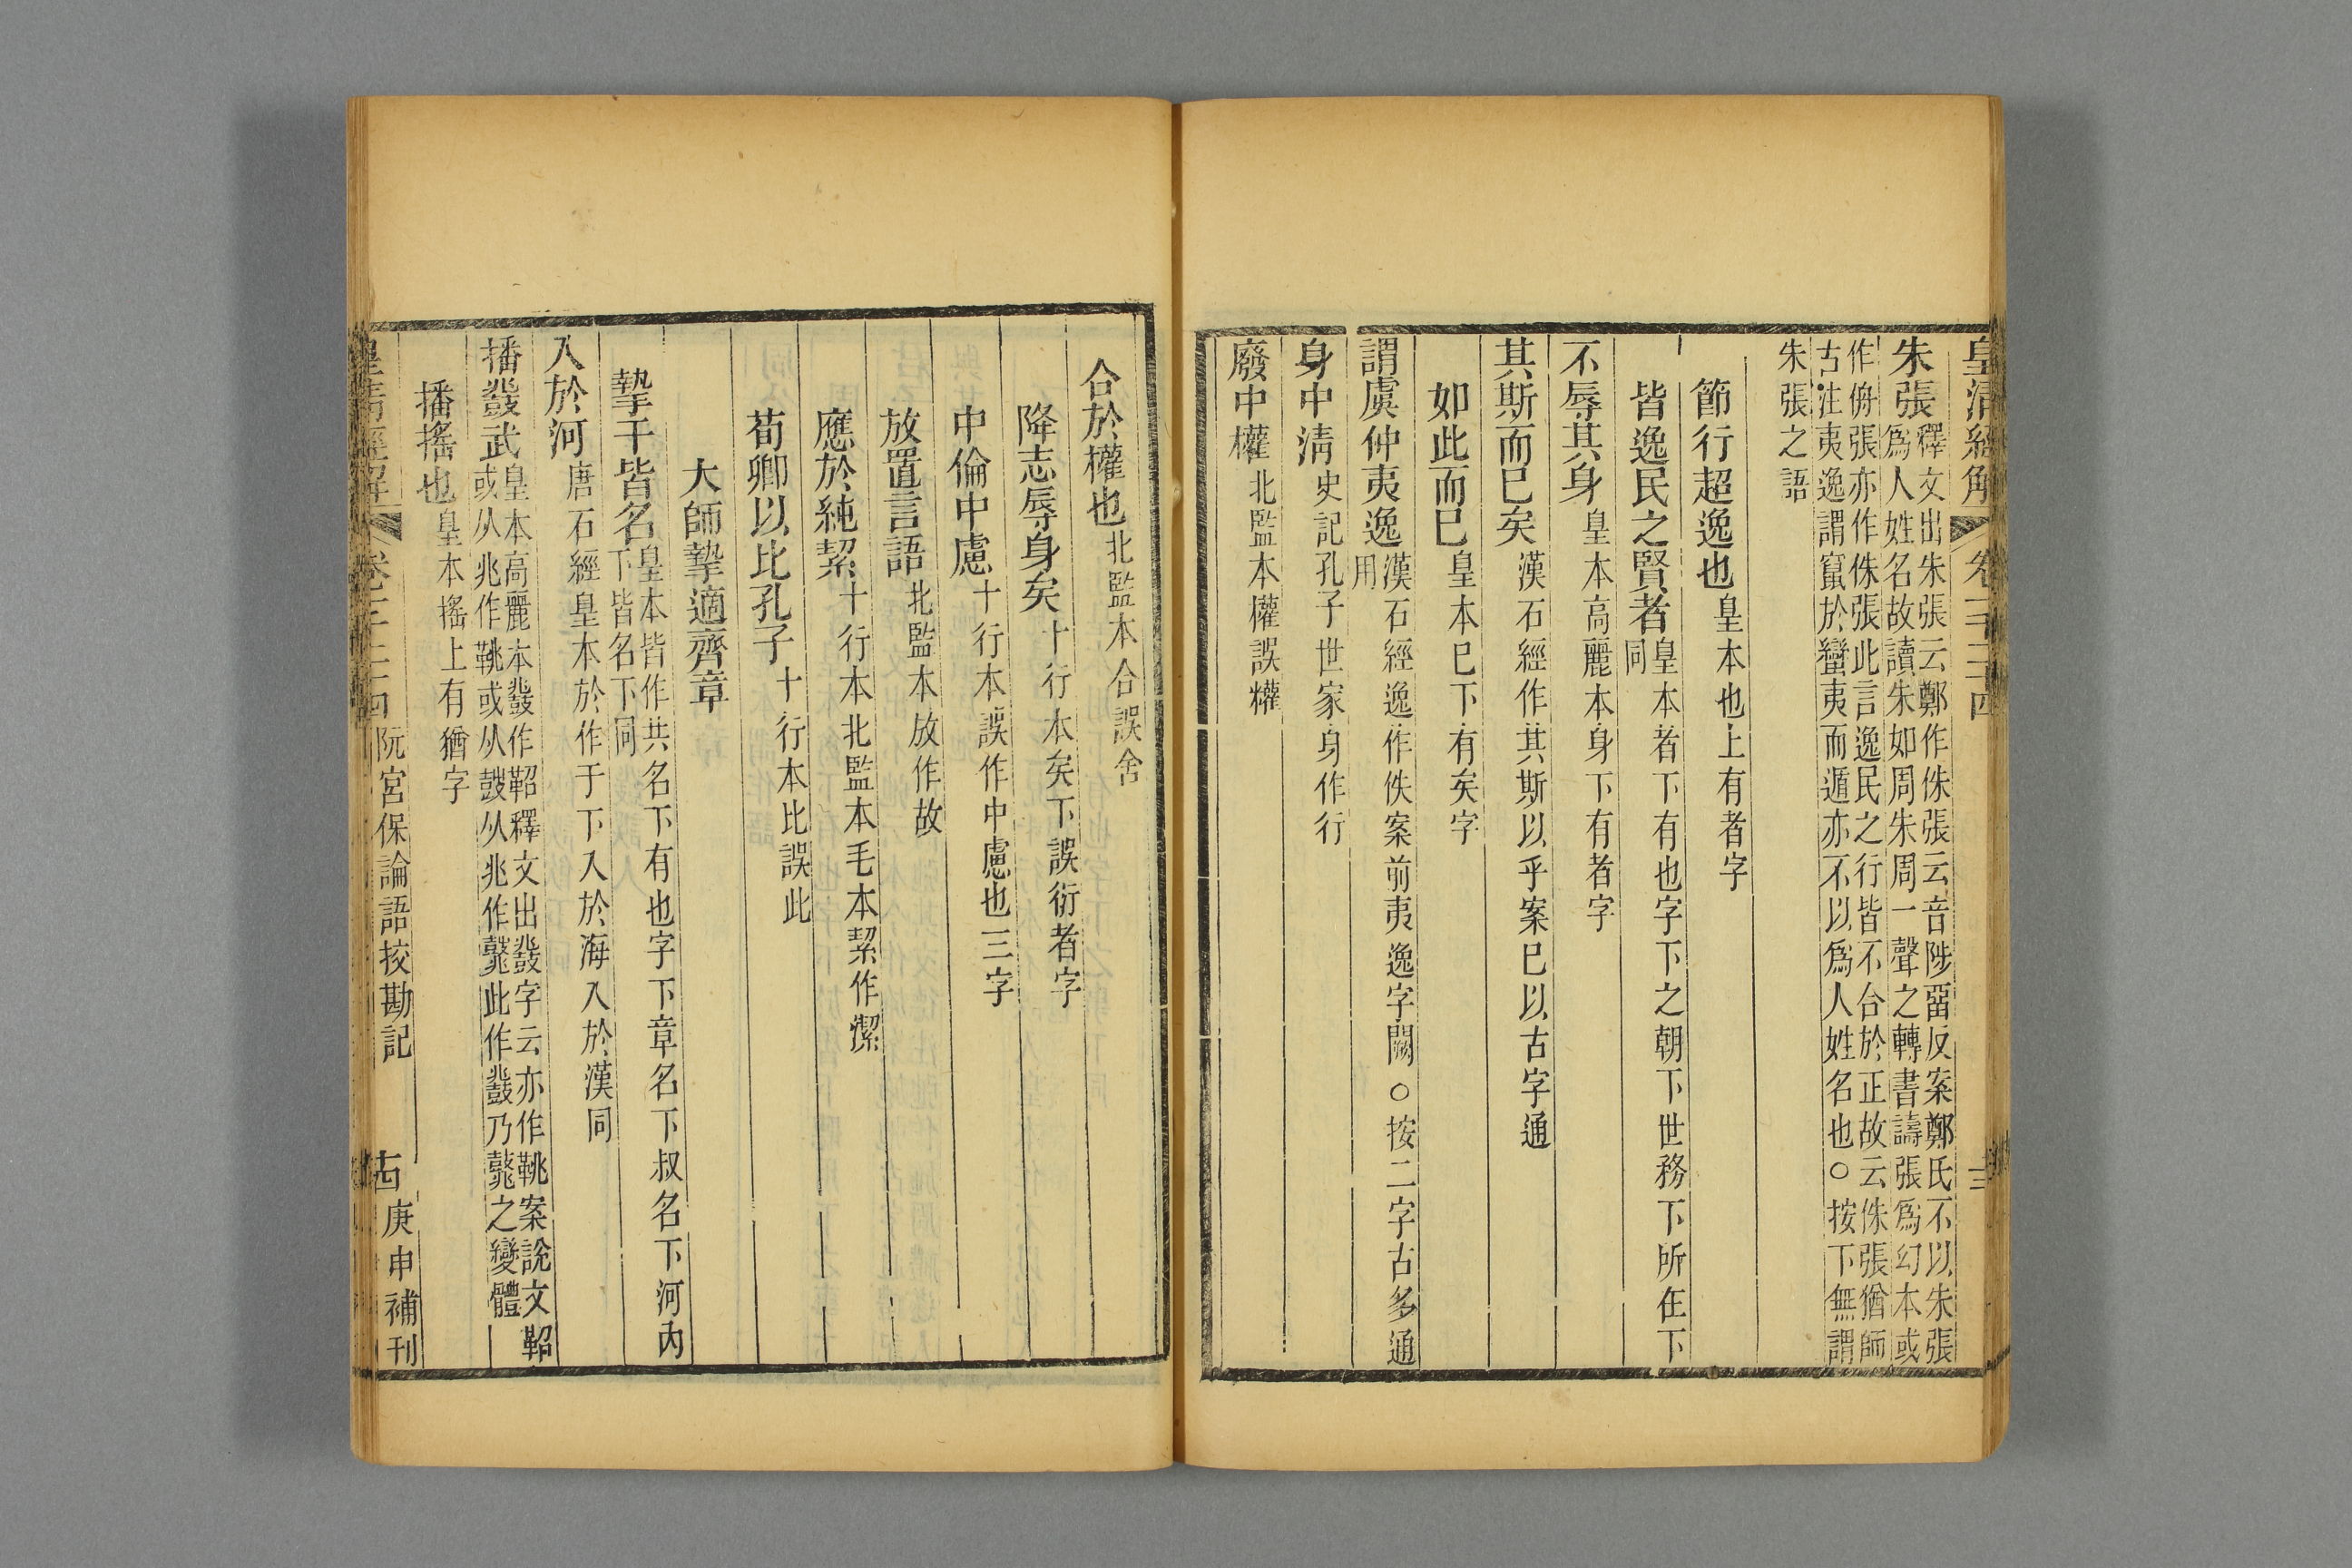 皇清經解 卷一千二十四 三
朱張釋文出朱張云鄭作侏張云音陟留反案鄭氏不以朱張
爲人姓名故讀朱如周朱周一聲之轉書譸張爲幻本或
作侜張亦作侏張此言逸民之行皆不合於正故云侏張猶師
古注夷逸謂竄於蠻夷而遁亦不以爲人姓名也○按下無謂
朱張之語
節行超逸也皇本也上有者字
皆逸民之賢者皇本者下有也字下之朝下世務下所在下
同
不辱其身皇本高麗本身下有者字
其斯而已矣漢石經作其斯以乎案已以古字通
如此而已皇本已下有矣字
謂虞仲夷逸漢石經逸作佚案前夷逸字闕○按二字古多通
用
身中淸史記孔子世家身作行
廢中權北監本權誤㩲
合於權也北監本合誤舍
降志辱身矣十行本矣下誤衍者字
中倫中慮十行本誤作中慮也三字
放置言語北監本放作故
應於純絜十行本北監本毛本絜作潔
荀卿以比孔子十行本比誤此
大師摯適齊章
摯干皆名皇本皆作共名下有也字下章名下叔名下河內
下皆名下同
入於河唐石經皇本於作于下入於海入於漢同
播鼗武皇本高麗本鼗作鞀釋文出鼗字云亦作鞉案說文鞀
或从兆作鞉或从鼓从兆作鼗此作鼗乃鼗之變體
播搖也皇本搖上有猶字
皇淸經解 卷一千二十四 阮宮保論語挍勘記 古 庚申補刊